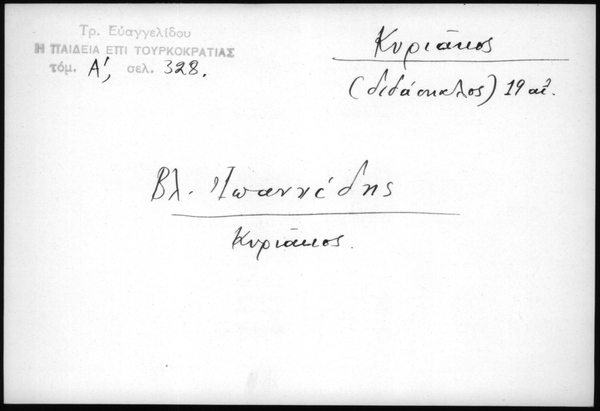 Τρ. Εὐαγγελίδου
Η ΠΑΙΔΕΙΑ ΕΠΙ ΤΟΥΡΚΟΚΡΑΤΙΑΣ
τόμ. Α', σελ. 328.
Κυριάκος
(διδάσκαλος) 19 αἰ.
Βλ. Ἰωαννίδης
Κυριάκος.